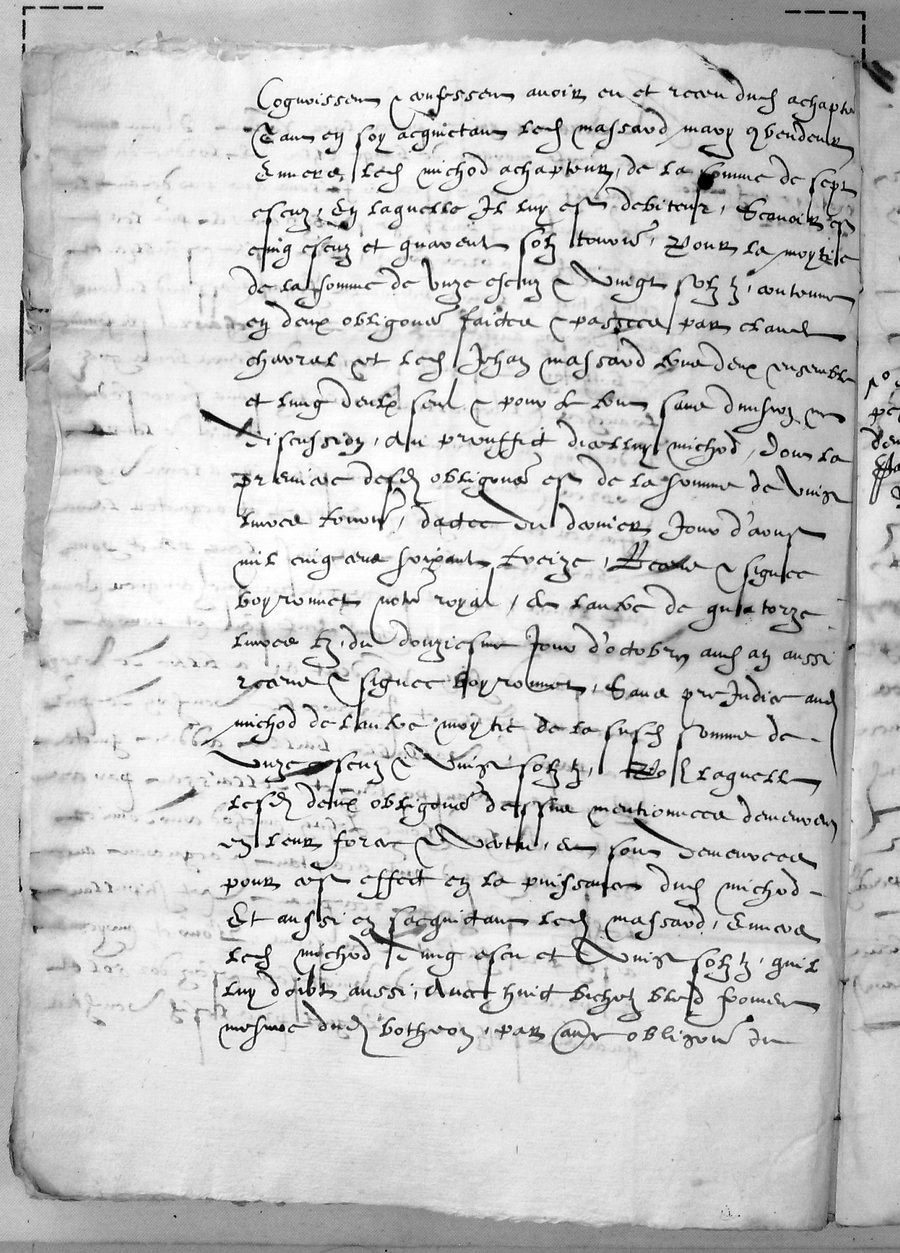 Cognoissent & confessent avoir eu et receu dud achapte
Tant en soy acquictant led massard mary & vendeur
Envers led michod achapteur, de la somme de sept
escuz, En laquelle Il luy est debiteur, Scavoir est
cinq escuz et quarente solz tournois, Pour la moytie
de la somme de Unze escuz & Vingt solz tz, contenue
en deux obligons faictes & passees par claude
chavral et led Jehan massard tous deux ensemble
et lung deulx seul & pour le tout sans division ne
discussion, Au prouffict dicelluy michod, dont la
premiere desd obligons est de la somme de Vingt
livres tournois, dactee du dernier Jour d'aoust
mil cinq cens soixante treize, Receue & signee
boyronnet notre royal, et lautre de quatorze
livres tz, du douziesme Jour d'octobre aud an aussi
receue & signee boyronnet, Sans preJudice aud
michod de lautre moytie de la susd somme de
Unze escuz & Vingt solz tz, Po laquelle
lesd deux obligons dessus mentionnees demeurent
en leur force & Vertu, et sont demeurees
pour cest effect en la puissance dud michod
Et aussi en sacquictant led massard, Envers
led michod d'ung escu et Vingt solz tz, quil
luy doibt aussi, Avec huict bichetz bled froment
mesure dud botheon, par autre obligon du